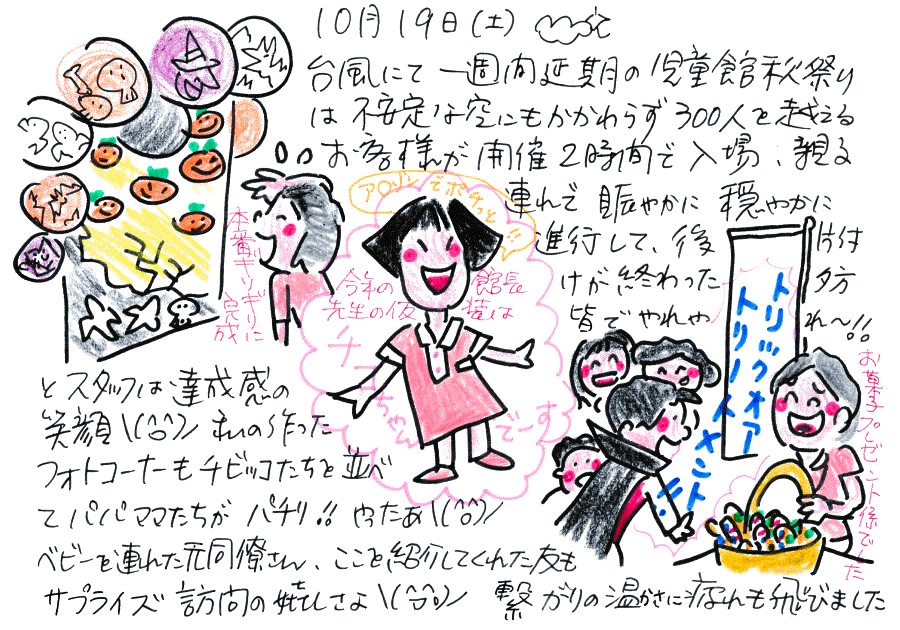 10月19日(土)
台風にて一週間延期の児童館秋祭り
は不安定な空にもかかわらず300人を越える
お客様が開催2時間で入場、親子
連れで賑やかに穏やかに
進行して、後片付
けが終わった夕方
皆でやれやれ〜!!
とスタッフは達成感の
笑顔\(^o^)/私の作った
フォトコーナーもチビッコたちを並べ
てパパママたちがパチリ!!やったあ\(^o^)/
ベビーを連れた元同僚さん、ここを紹介してくれた友も
サプライズ訪問の嬉しさよ\(^o^)/繋がりの温かさに疲れも飛びました
本番ギリギリに
完成
アマゾンでポチッと
今年の館長
先生の仮装は
チコちゃん
でーす
トリックオア
トリートメント!!
お菓子プレゼント係でした